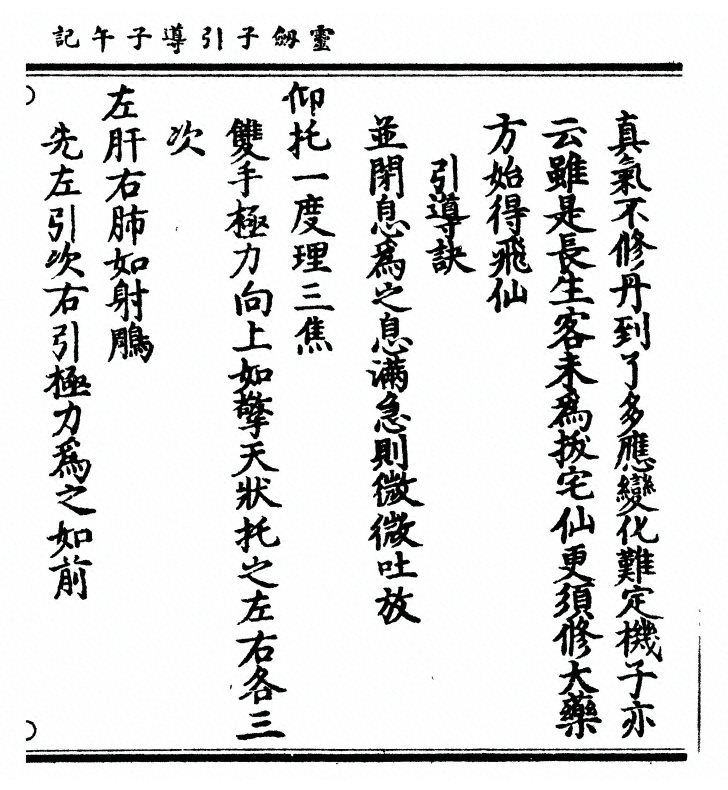 靈劒子引導子午記
真氣不修丹到了多應變化難定機子亦
云雖是長生客未爲拔宅仙更須修大藥
方始得飛仙
引導訣
並閉息爲之息滿急則微微吐放
仰托一度理三焦
雙手極力向上如擎天狀托之左右各三
次
左肝右肺如射鵰
先左引次右引極力爲之如前